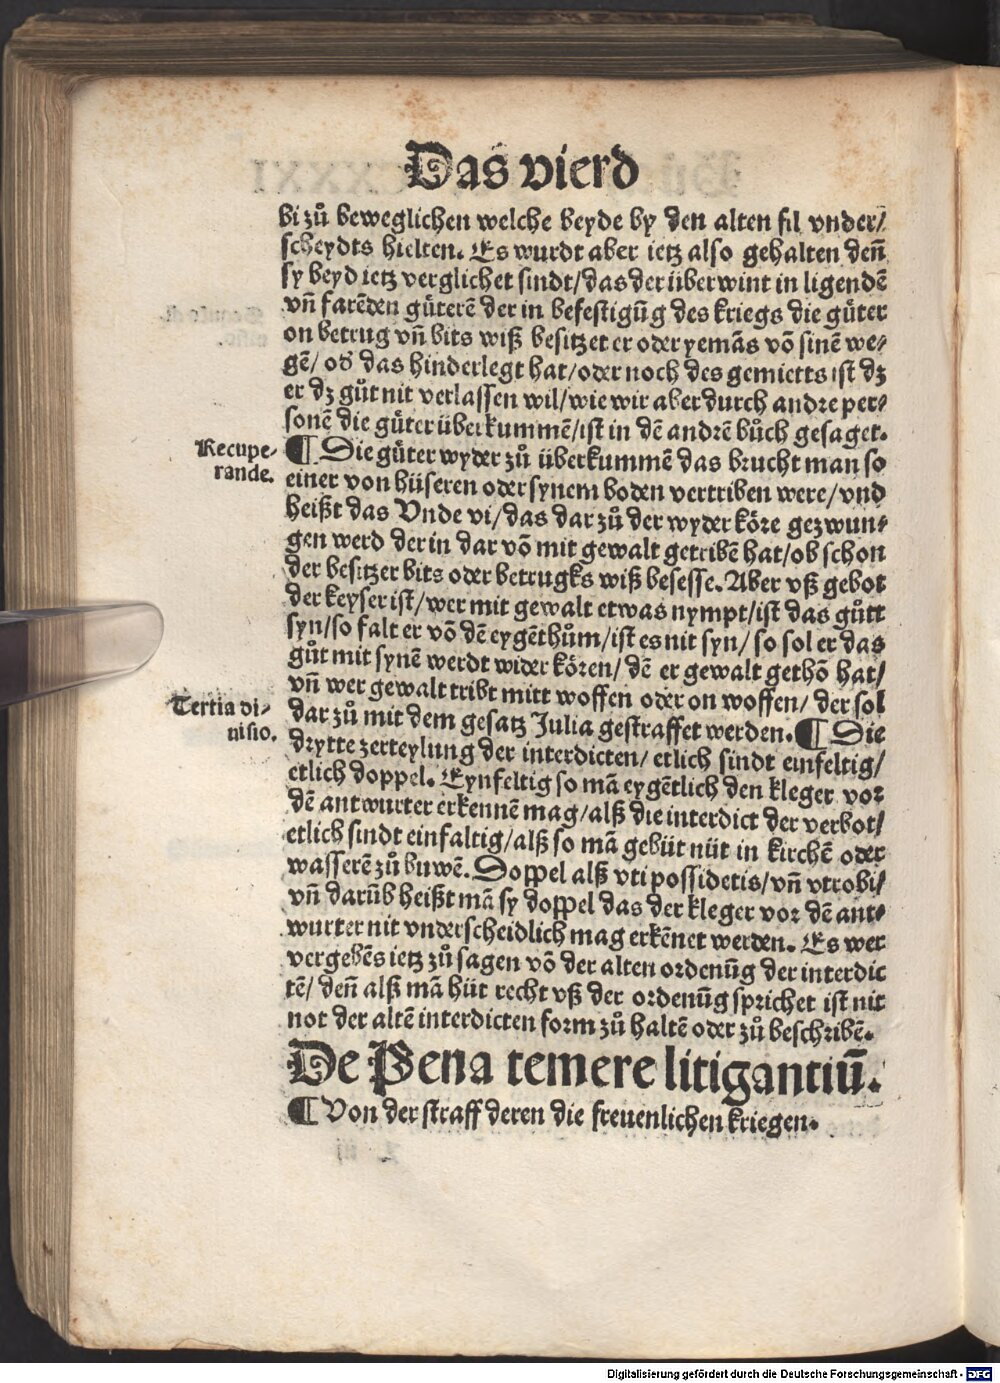 Das vierd
bi zů beweglichen welche beyde by den alten fil vnder/
scheydts hielten. Es wurdt aber ietz also gehalten deñ
sy beyd ietz verglichet sindt/das der überwint in ligendē
vñ farēden gůterē der in befestigūg des kriegs die gůter
on betrug vñ bits wiß besitzet er oder yemās vō sinē we⸗
gē/ oď das hinderlegt hat/oder noch des gemietts ist dz
er dz gůt nit verlassen wil/wie wir aber durch andre per⸗
sonē die gůter überkummē/ist in dē andrē bůch gesaget.
Recupe⸗
rande.
¶ Die gůter wyder zů überkummē das brucht man so
einer von hüseren oder synem boden vertriben were/vnd
heißt das Vnde vi/das dar zů der wyder köre gezwun⸗
gen werd der in dar vō mit gewalt getribē hat/ob schon
der besitzer bits oder betrugks wiß besesse. Aber vß gebot
der keyser ist/wer mit gewalt etwas nympt/ist das gůtt
syn/so falt er vō dē eygēthům/ist es nit syn/ so sol er das
gůt mit synē werdt wider kören/ dē er gewalt gethō hat/
vñ wer gewalt tribt mitt woffen oder on woffen/ der sol
Tertia di⸗
uisio.
dar zů mit dem gesatz Julia gestraffet werden. ¶ Die
drytte zerteylung der interdicten/ etlich sindt einfeltig/
etlich doppel. Eynfeltig so mā eygētlich den kleger vor
dē antwurter erkennē mag/alß die interdict der verbot/
etlich sindt einfaltig/alß so mā gebüt nüt in kirchē oder
wasserē zů buwē. Doppel alß vti possidetis/vñ vtrobi/
vñ darūb heißt mā sy doppel das der kleger vor dē ant⸗
wurter nit vnderscheidlich mag erkēnet werden. Es wer
vergebēs ietz zů sagen vō der alten ordenūg der interdic
tē/ deñ alß mā hüt recht vß der ordenūg sprichet ist nit
not der altē interdicten form zů haltē oder zů beschribē.
De Pena temere litigantiū.
¶ Von der straff deren die freuenlichen kriegen.
Digitalisierung gefördert durch die Deutsche Forschungsgemeinschaft - DFG